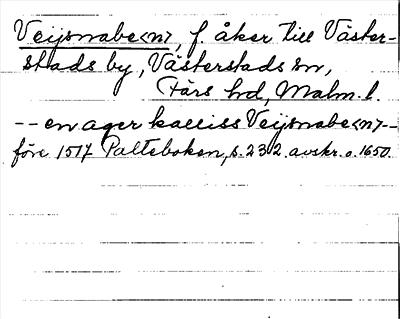 Veijsnabe<n>, f. åker till Väster-
stads by, Västerstads sn,
Färs hd, Malm. l.
-- en ager kalliss Veijsnabe<n> --
före 1517 Palteboken, s. 232. avskr. o. 1650.